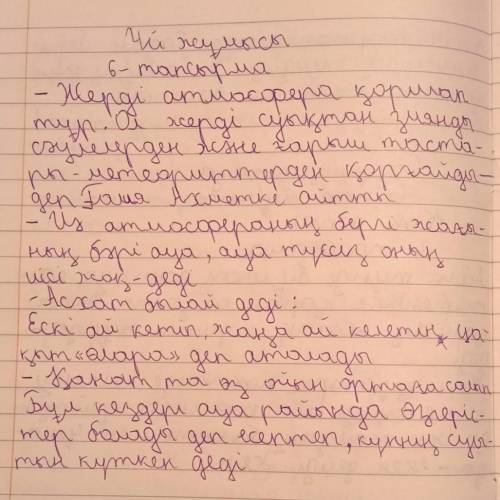 Үй жұмысы
6-тапсырма
- Жерді атмосфера қоршап
тұр. Ол жерді суықтан зиянды
сәулелерден және ғарыш таста-
ры-метеориттерден қорғайды-
деп Ғалия Ахметке айтты
- Из атмосфераның бергі жағы-
ның бәрі ауа, ауа түссіз оның
иісі жоқ-деді
- Асхат былай деді:
Ескі ай кетіп, жаңа ай келетін уа-
қыт «өлара» деп аталады
- Қанат та өз ойын ортаға салып
Бұл кездері ауа райында өзгеріс-
тер болады деп есептеп, күннің суы-
тын күткен деді